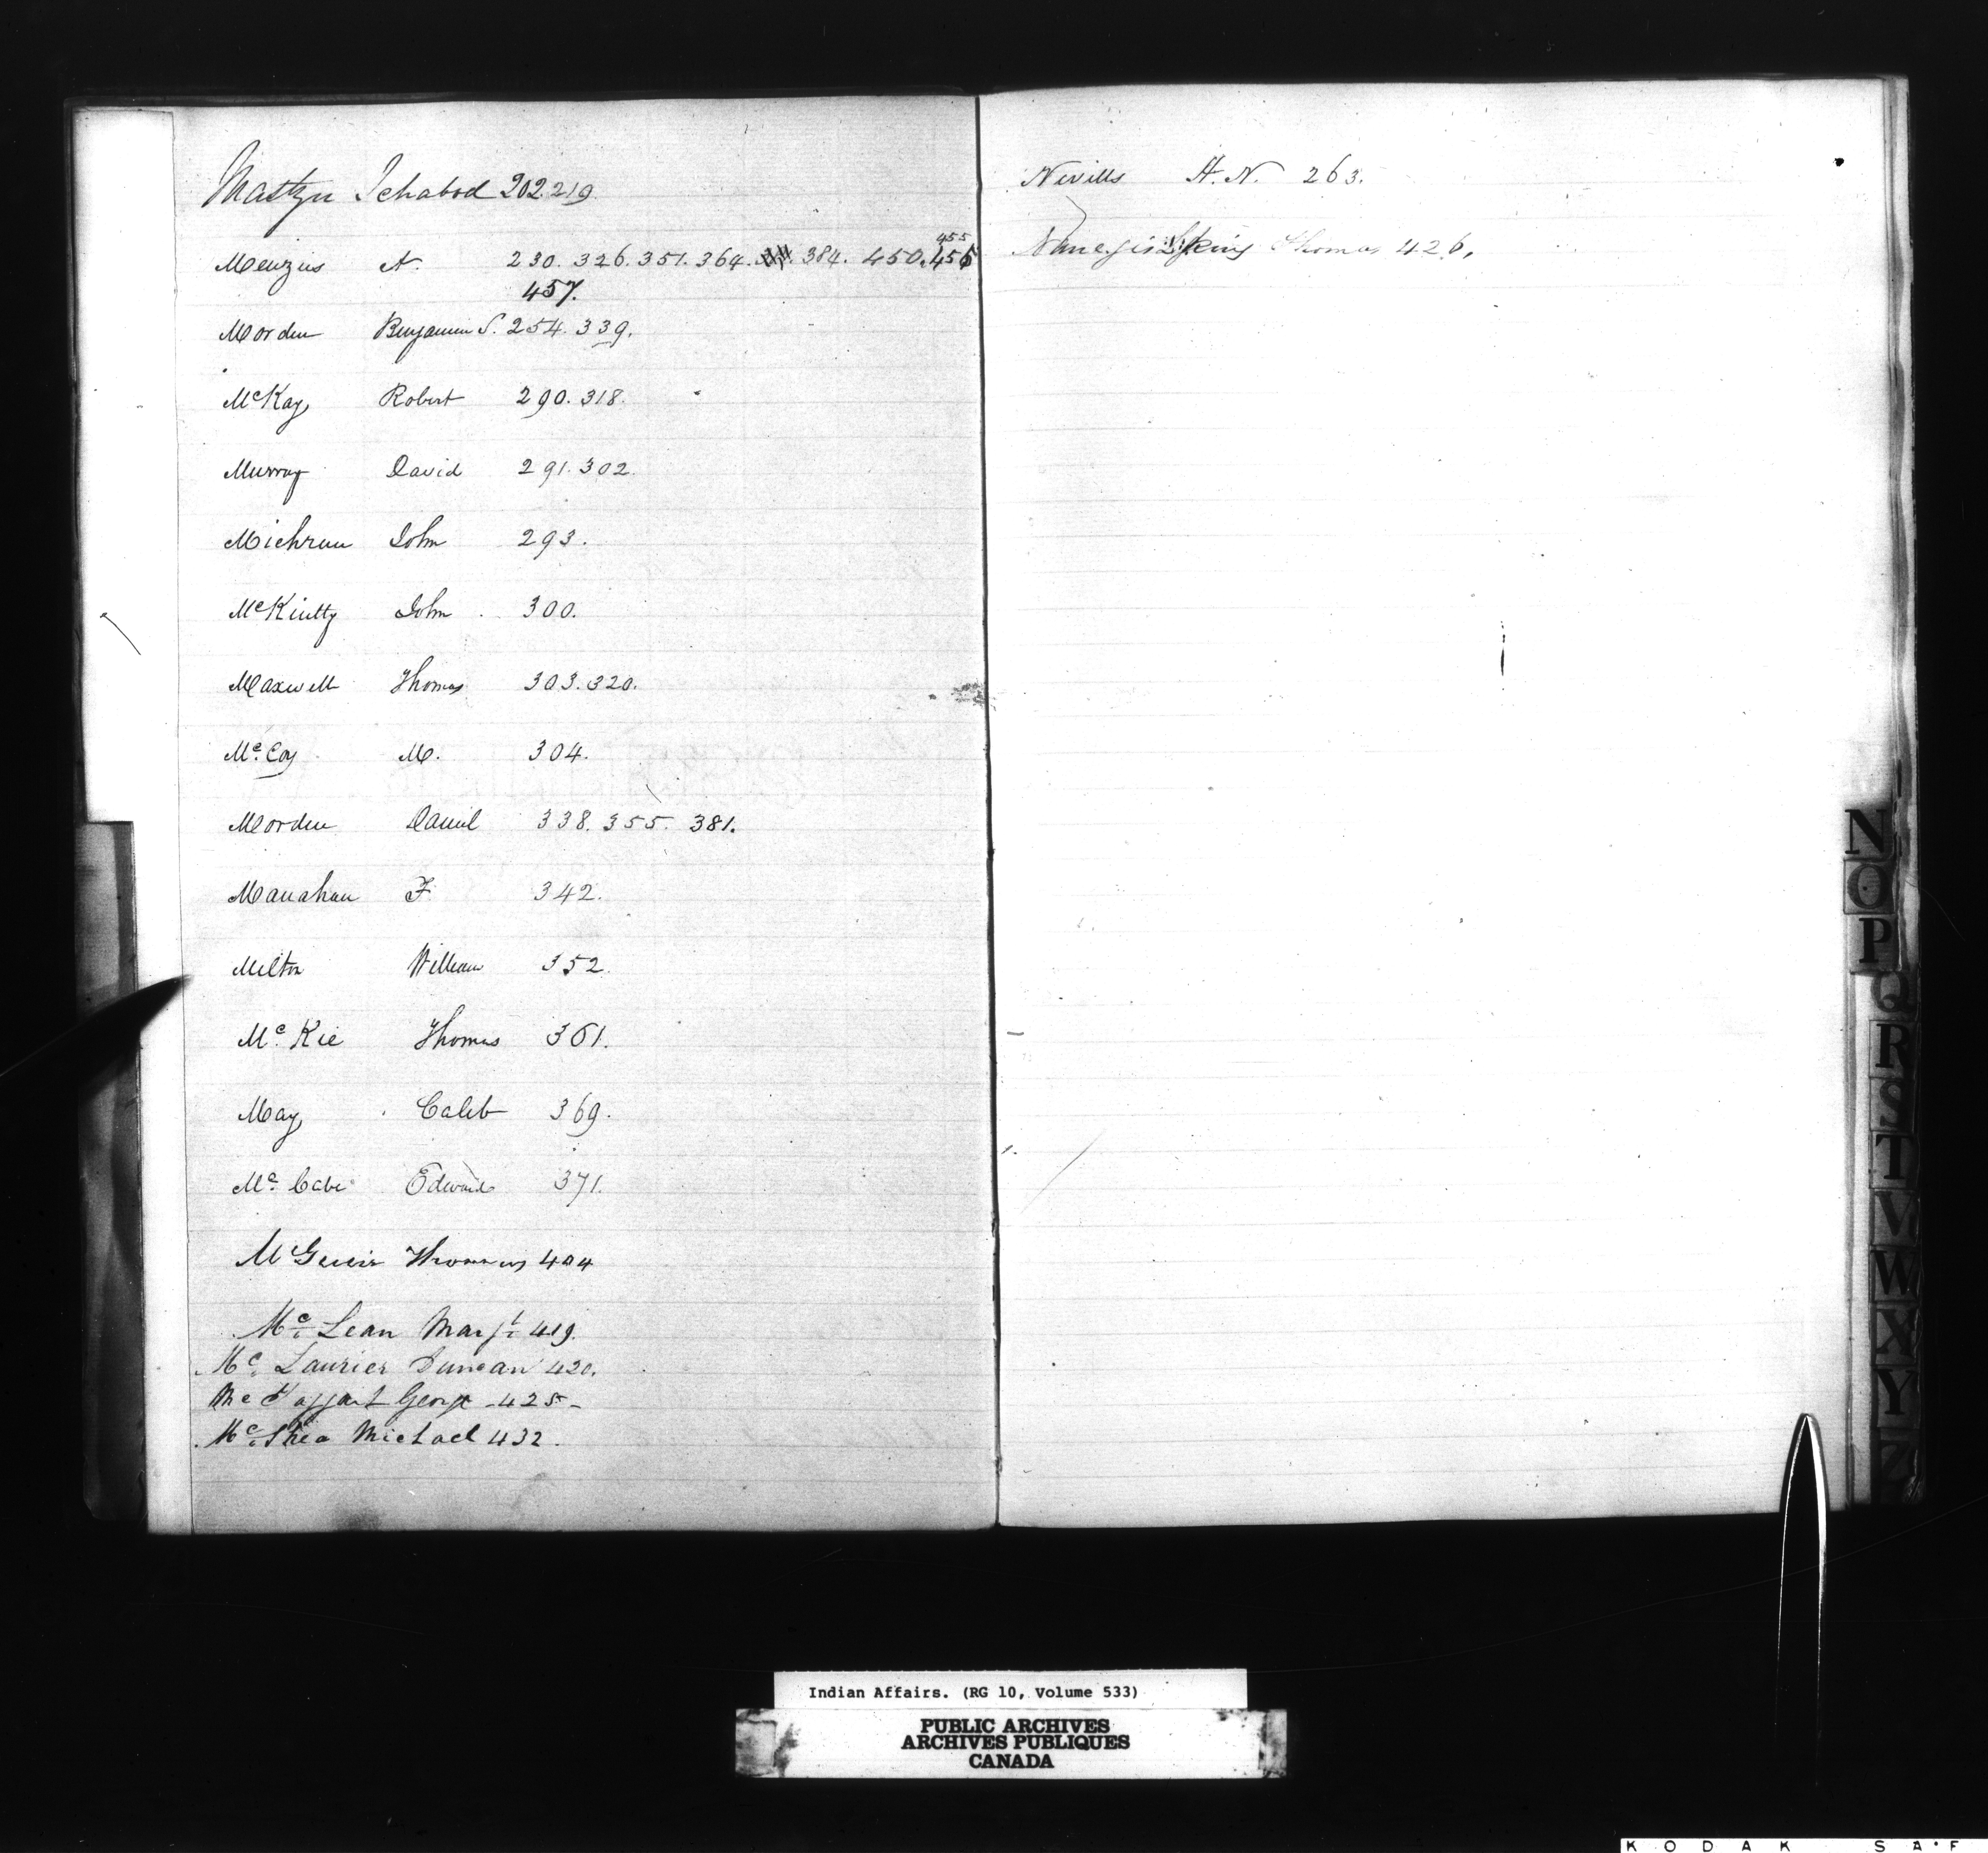 Mastyn Ichabod 202.219
455
Menzies A. 230. 326. 351. 364. 384. 450. 456
457.
Morden Benjamin S. 254. 339.
McKay Robert 290. 318.
Murray David 291. 302.
Michrun John 293.
McKintty John 300.
Maxwell Thomas 303. 320.
Mc.Coy M. 304.
Morden Daniel 338. 355. 381.
Manahan F. 342.
Milton William 352.
Mc. Kie Thomas 361.
May Caleb 369.
Mc. Cabe Edward 371.
McGuein Thomas 404
Mc. Lean Margt. 419.
Mc. Laurier Duncan 420.
Mc Taggart George - 425 -
Mc. Shea Michael 432.
Nevills H. N. 263.
Thomas 426.
N
O
P
Q
R
S
T
V
W
X
Y
Z
Indian Affairs. (RG 10, Volume 533)
PUBLIC ARCHIVES
ARCHIVES PUBLIQUES
CANADA
KODAK SA·F